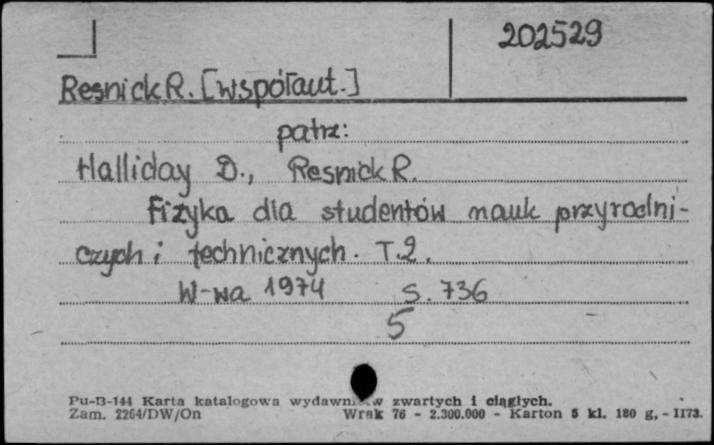 202529
Resnick R. [współaut.]
patrz:
Halliday D., Resnick R.
Fizyka dla studentów nauk przyrodni-
czych i technicznych. T.2.
W-wa 1974 S. 736
5
Pu-B-144 Karta katalogowa zwartych i ciągłych.
Zam. 2264/DW/On Wrak 76 - 2.300.000 - Karton 5 kl. 180 g, - II73.